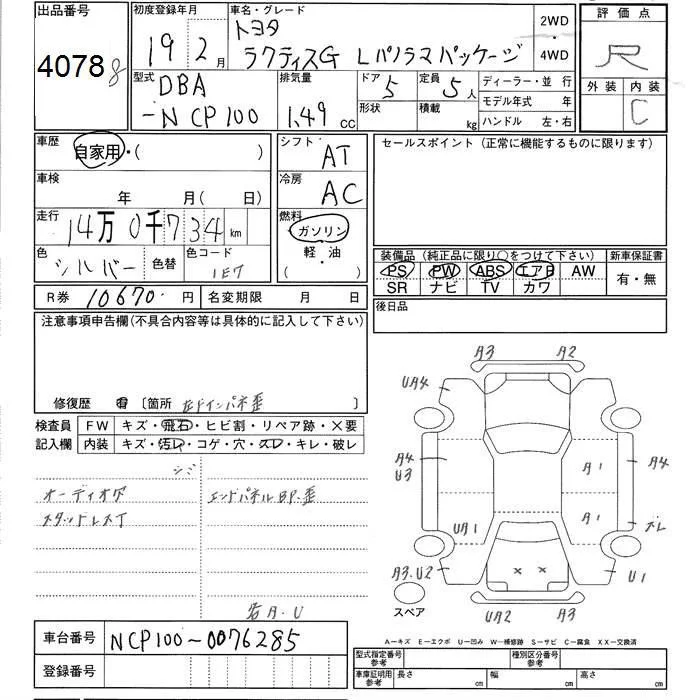 出品番号
4078
8
初度登録年月
19年2月
車名・グレード
トヨタ
ラクティスG Lパノラマパッケージ
2WD
・
4WD
評価点
R
外装 内装
C
型式
DBA
-NCP100
排気量
1.49 cc
ドア
5
定員
5人
形状
積載
kg
ディーラー・並行
モデル年式 年
ハンドル 左・右
車歴
自家用・( )
シフト
AT
セールスポイント (正常に機能するものに限ります)
車検
年 月( 日)
冷房
AC
走行
14万0千734km
燃料
ガソリン
・軽・油
( )
色
シルバー
色替
色コード
1E7
装備品 (純正品に限り○をつけて下さい)
新車保証書
PS PW ABS エアB AW
SR ナビ TV カワ
有・無
R券 10670円
名変期限 月 日
後日品
注意事項申告欄(不具合内容等は具体的に記入して下さい)
修復歴 有 〔箇所 〕
検査員
記入欄
FW キズ・飛石・ヒビ割・リペア跡・×要
内装 キズ・汚レ・コゲ・穴・スレ・キレ・破レ
シミ
オーディオグ
スタッドレスT
エンドパネルBP.歪
名A.U
A3 A2
UA4
A4
U3
A1 A4
UA1 A1 ズレ
A3.U2 × × U1
スペア
UA2 A3
A－キズ E－エクボ U－凹み W－補修跡 S－サビ C－腐食 XX－交換済
車台番号 NCP100-0076285
登録番号
型式指定番号
参考
種別区分番号
参考
車庫証明用
参考
長さ cm 幅 cm 高さ cm